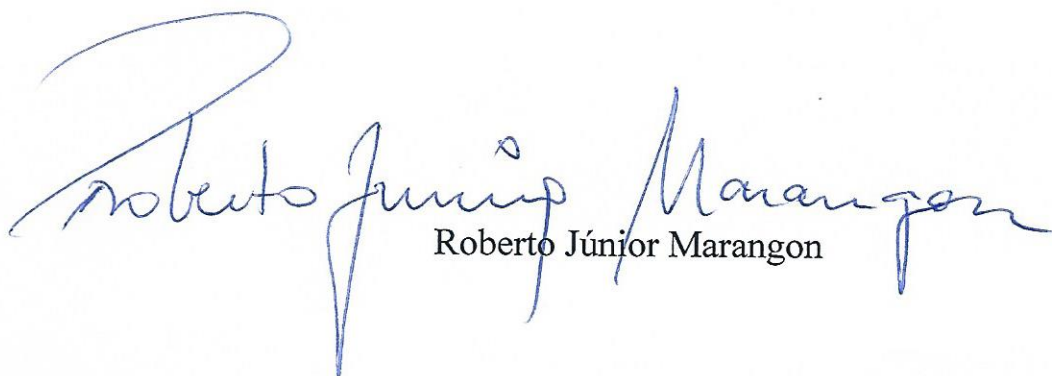 Roberto Junior Marangon
Roberto Júnior Marangon